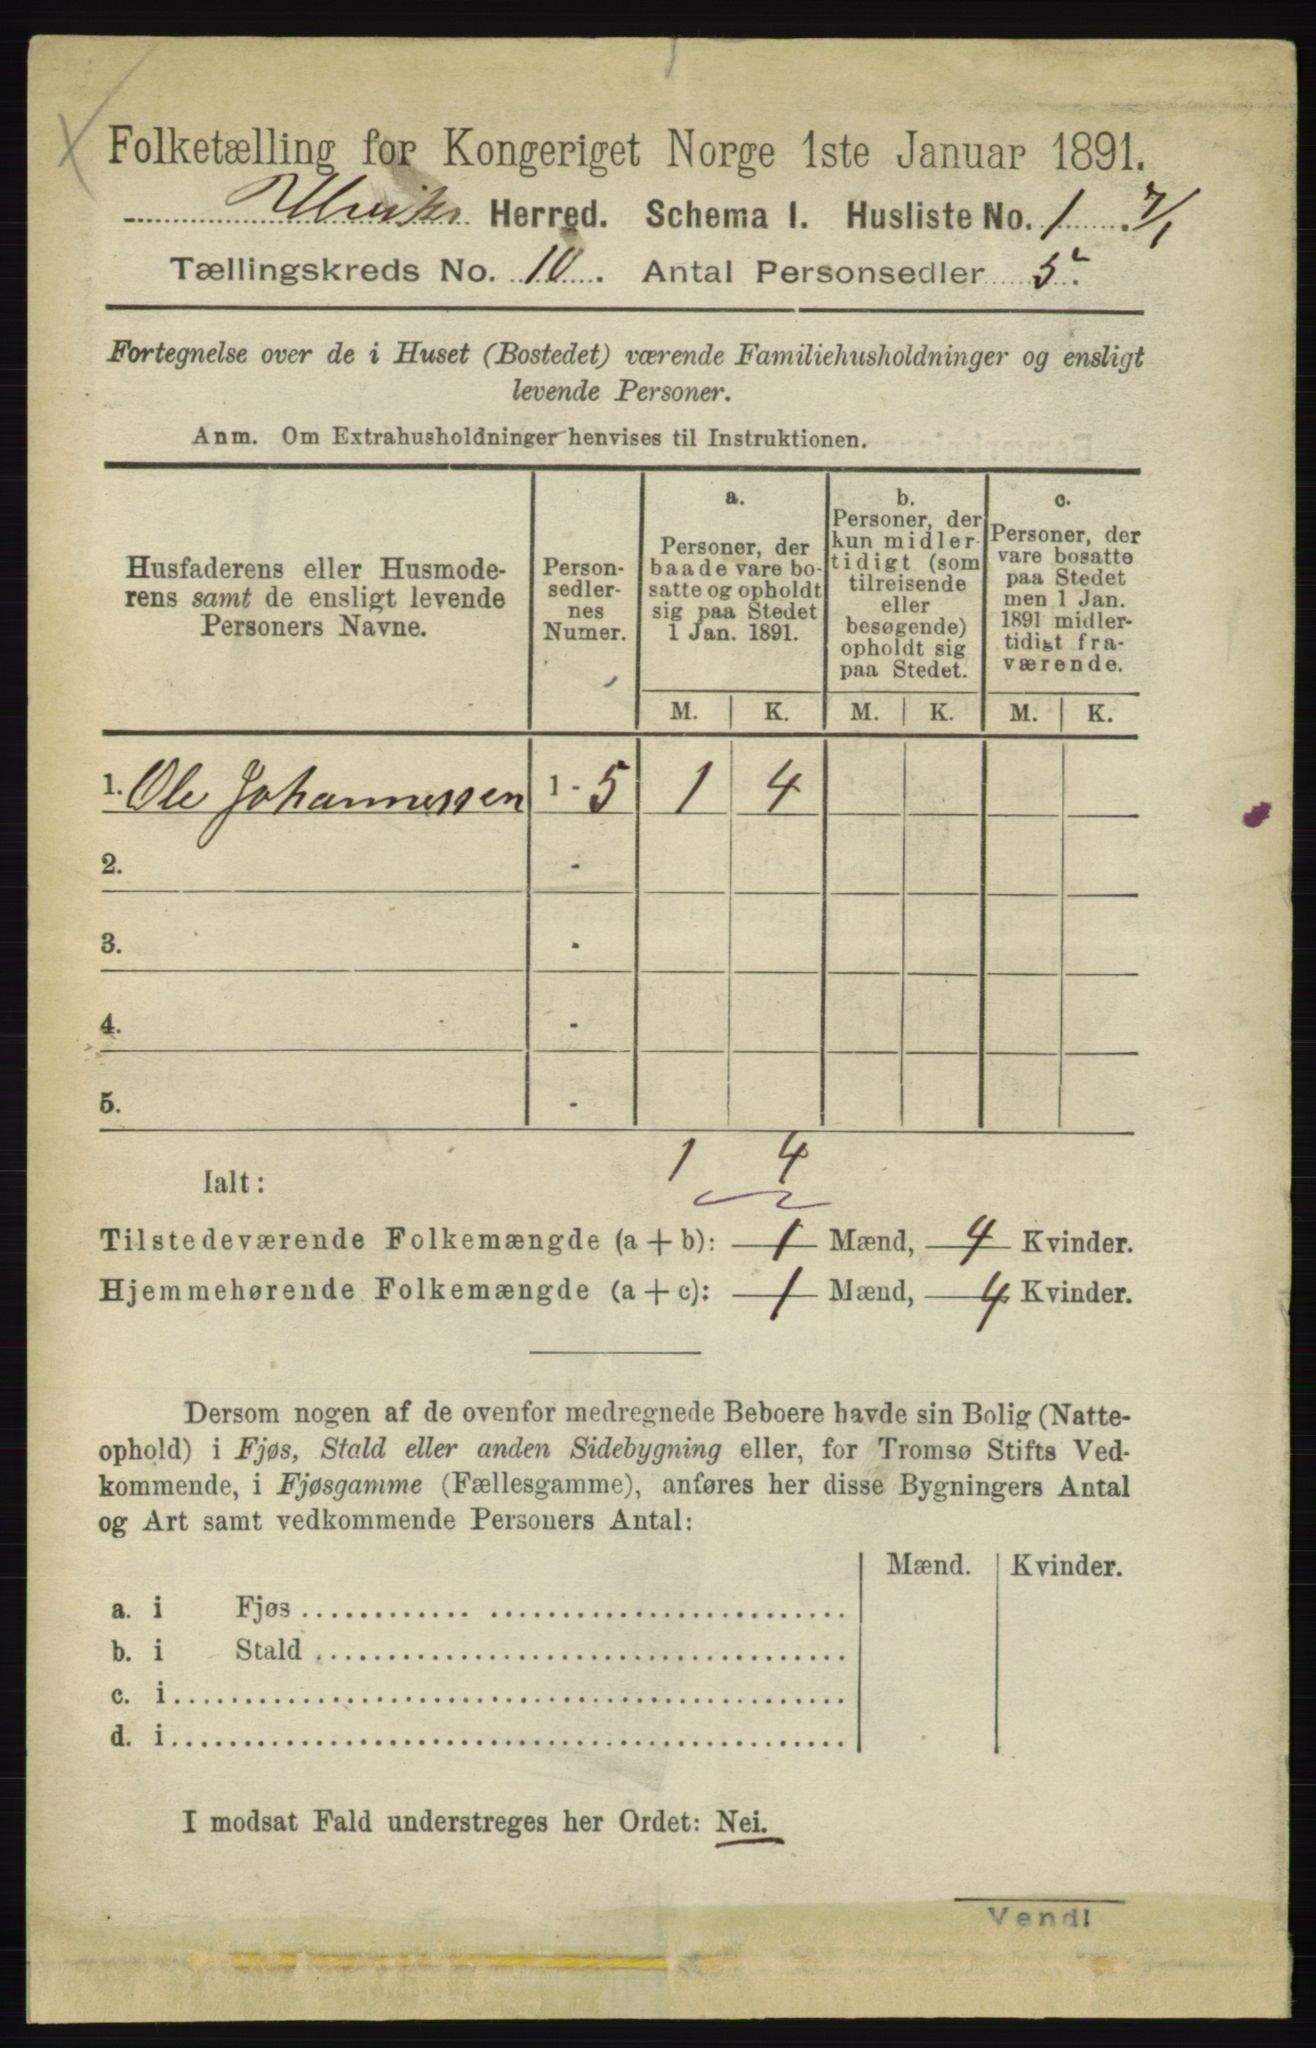 Folketælling for Kongeriget Norge 1ste Januar 1891.
Ulviks Herred. Schema I. Husliste No. 1 7/1
Tællingskreds No. 10. Antal Personsedler 5.
Fortegnelse over de i Huset (Bostedet) værende Familiehusholdninger og ensligt
levende Personer.
Anm. Om Extrahusholdninger henvises til Instruktionen.
Husfaderens eller Husmode-
rens samt de ensligt levende
Personers Navne.
Person-
sedler-
nes
Numer.
a.
Personer, der
baade vare bo-
satte og opholdt
sig paa Stedet
1 Jan. 1891.
b.
Personer, der
kun midler-
tidigt (som
tilreisende
eller
besøgende)
opholdt sig
paa Stedet.
c.
Personer, der
vare bosatte
paa Stedet
men 1 Jan.
1891 midler-
tidigt fra-
værende.
M. K. M. K. M. K.
1. Ole Johannessen 1 - 5 1 4
2. -
3. -
4. -
5. -
1 4
Ialt:
Tilstedeværende Folkemængde (a + b): 1 Mænd, 4 Kvinder.
Hjemmehørende Folkemængde (a + c): 1 Mænd, 4 Kvinder.
Dersom nogen af de ovenfor medregnede Beboere havde sin Bolig (Natte-
ophold) i Fjøs, Stald eller anden Sidebygning eller, for Tromsø Stifts Ved-
kommende, i Fjøsgamme (Fællesgamme), anføres her disse Bygningers Antal
og Art samt vedkommende Personers Antal:
Mænd. Kvinder.
a. i Fjøs
b. i Stald
c. i
d. i
I modsat Fald understreges her Ordet: Nei.
Vend!